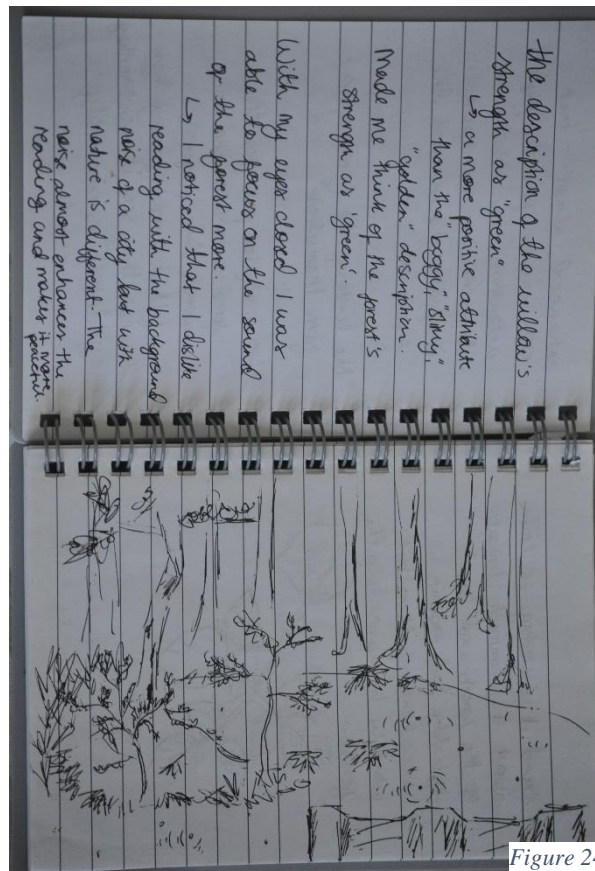 the description of the willow's
strength as "green"
↳ a more positive attribute
than the "boggy," "slimy",
"golden" description.
Made me think of the forest's
strengh as 'green'.
With my eyes closed I was
able to focus on the sound
of the forest more.
↳ I noticed that I dislike
reading with the background
noise of a city but with
nature is different. The
noise almost enhances the
reading and makes it more
peaceful.
Figure 24